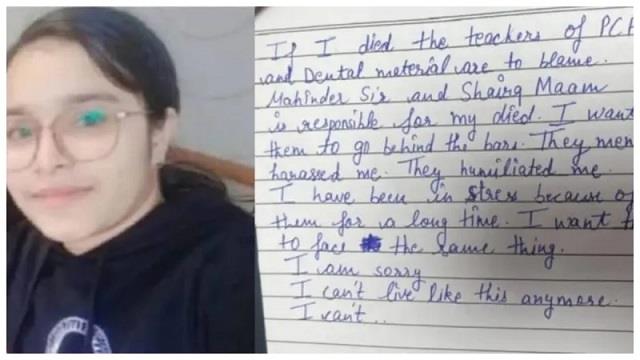 If I died the teachers of PCP
and Dental material are to blame.
Mahinder Sir and Shairg Maam
is responsible for my died. I want
them to go behind the bars. They men
harassed me. They humiliated me.
I have been in stress because o
them for a long time. I want
to face the same thing.
I am sorry
I can't live like this anymore.
I can't..